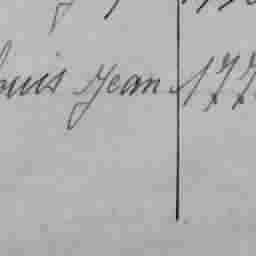 ouis Jean 177